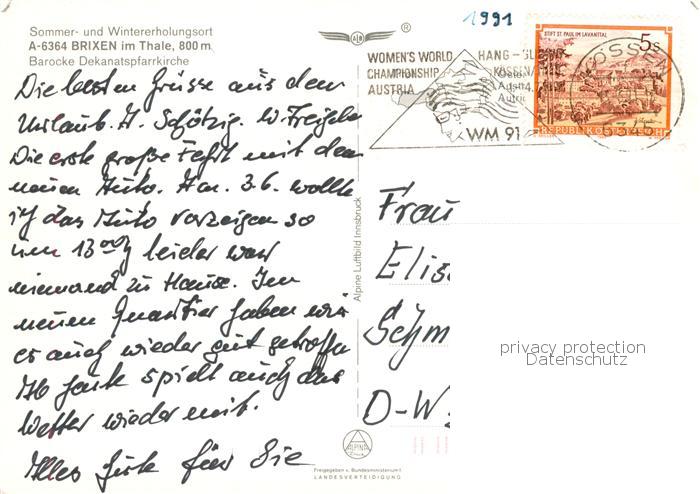 Sommer- und Wintererholungsort
A-6364 BRIXEN im Thale, 800 m
Barocke Dekanatspfarrkirche
1991
WOMEN'S WORLD
CHAMPIONSHIP
AUSTRIA
HANG-
KÖSSEN
WM 91
STIFT ST. PAUL IM LAVANTTAL
5s
REPUBLIK ÖSTERREICH
KÖSSEN
6345
Die besten Grüsse aus dem
Urlaub.
Die erste große Fahrt mit dem
neuen Auto. Am 3.6. wollte
ich das Auto vorzeigen so
um 13 00 leider war
niemand zu Hause. Im
neuen Quartier haben wir
es auch wieder gut getroffen
spielt auch das
Wetter wieder mit.
Alles Gute für Sie
Alpine Luftbild Innsbruck
Frau
Elis
Schm
D-W
privacy protection
Datenschutz
ALPINA
Freigegeben v. Bundesministerium f.
LANDESVERTEIDIGUNG